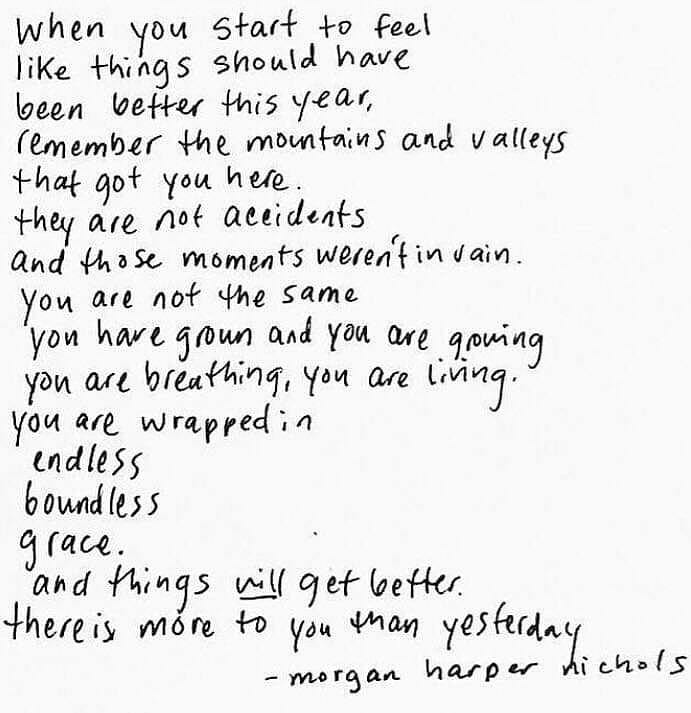 when you start to feel
like things should have
been better this year,
remember the mountains and valleys
that got you here.
they are not accidents
and those moments weren't in vain.
you are not the same
you have grown and you are growing
you are breathing, you are living.
you are wrapped in
endless
boundless
grace.
and things will get better.
there is more to you than yesterday
- morgan harper nichols